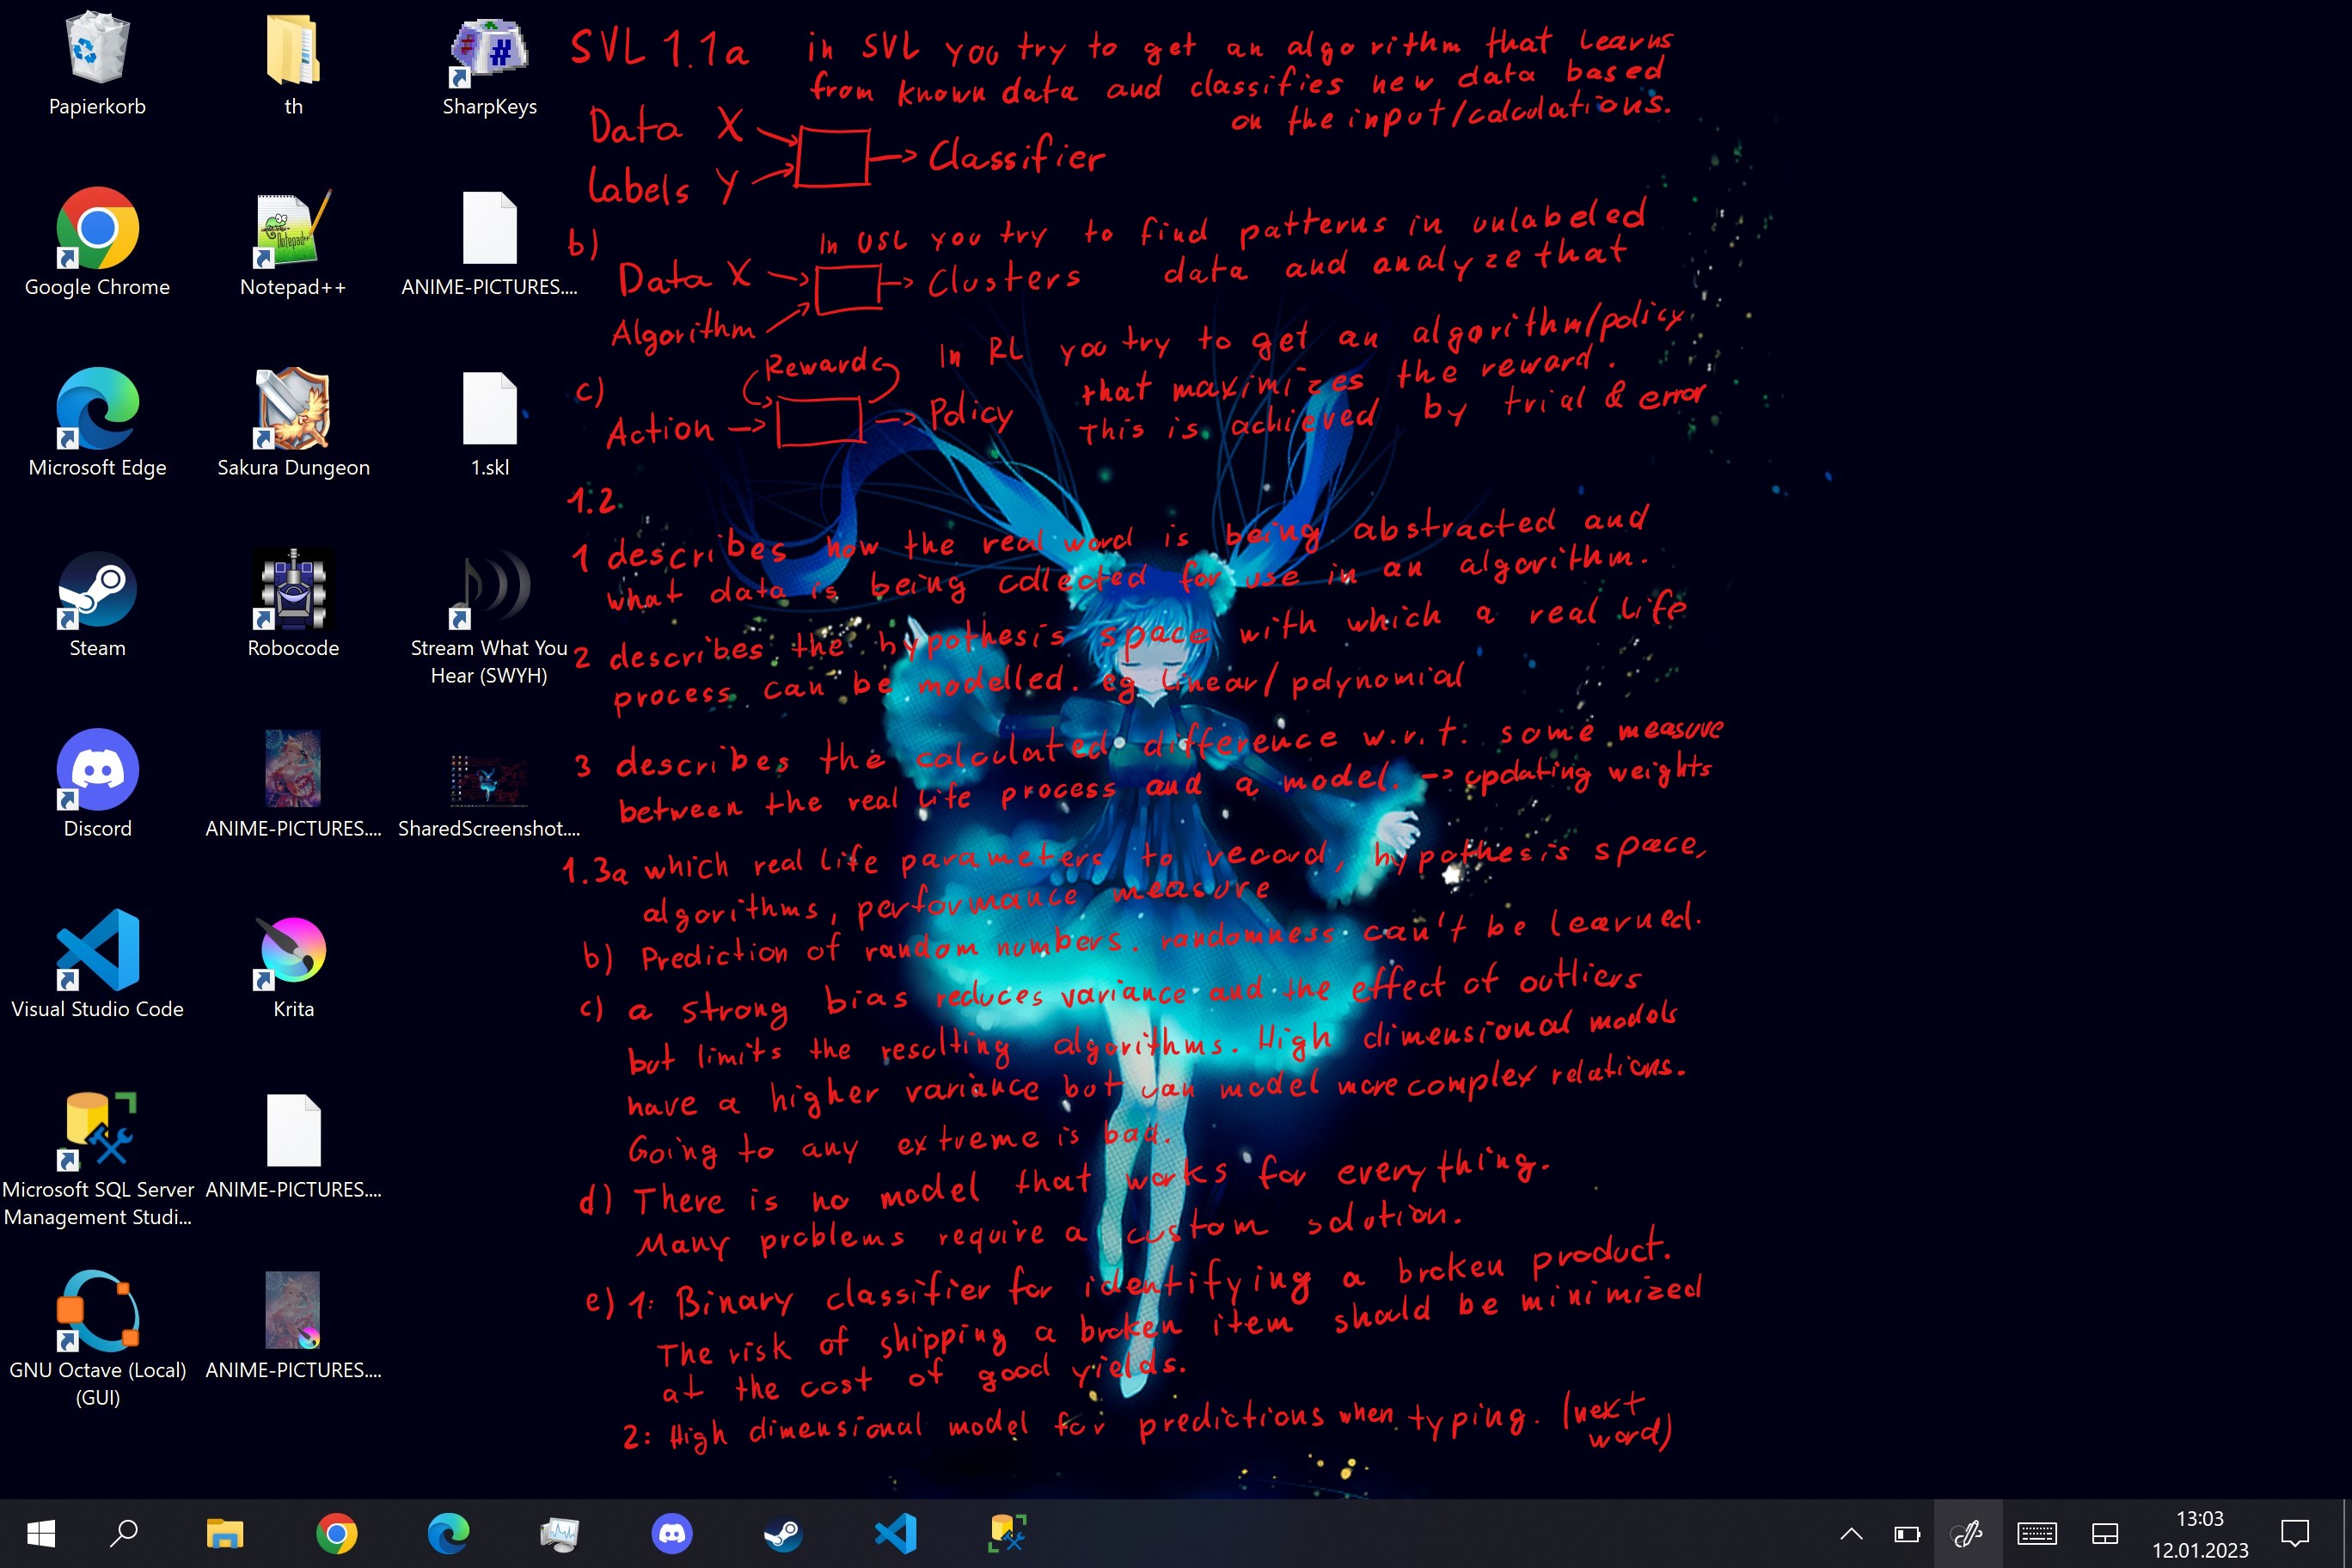 Papierkorb
th
SharpKeys
Google Chrome
Notepad++
ANIME-PICTURES....
Microsoft Edge
Sakura Dungeon
1.skl
Steam
Robocode
Stream What You
Hear (SWYH)
Discord
ANIME-PICTURES....
SharedScreenshot....
Visual Studio Code
Krita
Microsoft SQL Server
Management Studi...
ANIME-PICTURES....
GNU Octave (Local)
(GUI)
ANIME-PICTURES....
SVL 1.1a in SVL you try to get an algorithm that learns
from known data and classifies new data based
on the input/calculations.
Data X
Labels Y
-> Classifier
b) In USL you try to find patterns in unlabeled
Data X -> Clusters data and analyze that
Algorithm
c) Rewards In RL you try to get an algorithm/policy
that maximizes the reward.
Action -> -> Policy This is achieved by trial & error
1.2
1 describes how the real word is being abstracted and
what data is being collected for use in an algorithm.
2 describes the hypothesis space with which a real life
process can be modelled. eg linear/polynomial
3 describes the calculated difference w.r.t. some measure
between the real life process and a model. -> updating weights
1.3a which real life parameters to record, hypothesis space,
algorithms, performance measure
b) Prediction of random numbers. randomness can't be learned.
c) a strong bias reduces variance and the effect of outliers
but limits the resulting algorithms. High dimensional models
have a higher variance but can model more complex relations.
Going to any extreme is bad.
d) There is no model that works for everything.
Many problems require a custom solution.
e) 1: Binary classifier for identifying a broken product.
The risk of shipping a broken item should be minimized
at the cost of good yields.
2: High dimensional model for predictions when typing. (next
word)
13:03
12.01.2023